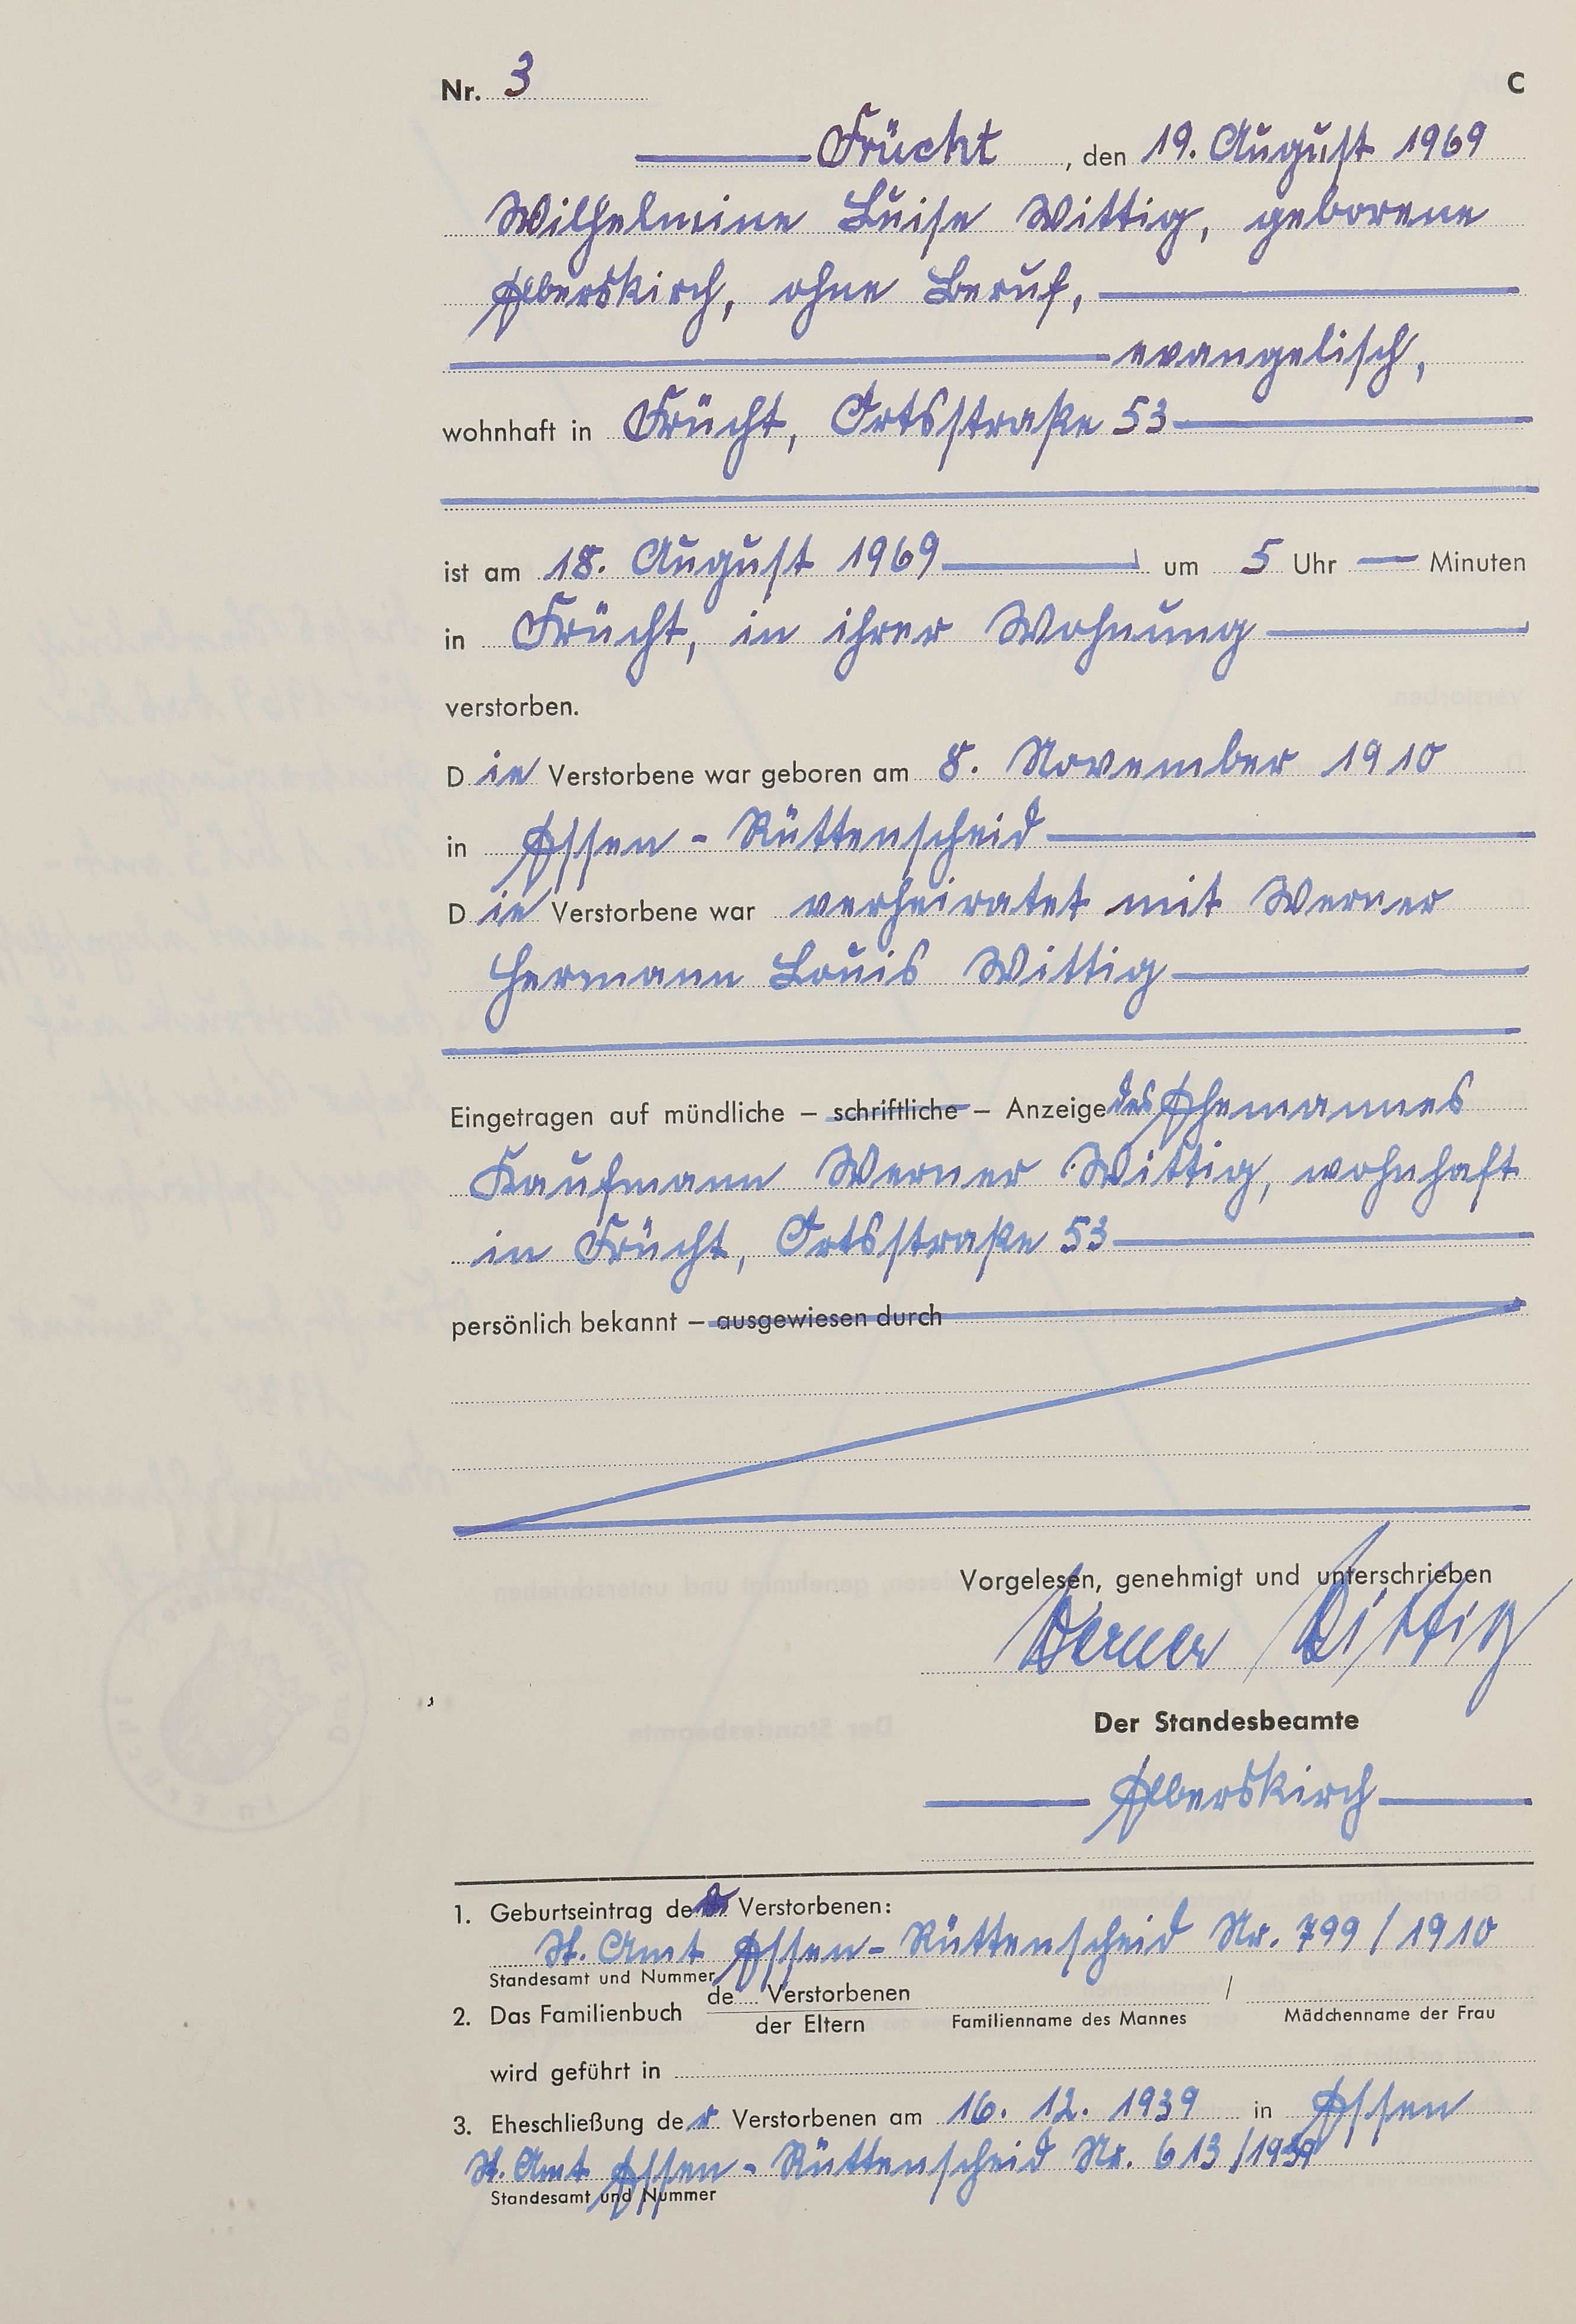 Nr. 3 C
Frücht, den 19. August 1969
Wilhelmine Luise Wittig, geborene
Elberskirch, ohne Beruf,
evangelisch,
wohnhaft in Frücht, Ortsstraße 53
ist am 18. August 1969 um 5 Uhr — Minuten
in Frücht, in ihrer Wohnung
verstorben.
Die Verstorbene war geboren am 8. November 1910
in Essen - Rüttenscheid
Die Verstorbene war verheiratet mit Werner
Hermann Louis Wittig
Eingetragen auf mündliche – schriftliche – Anzeige des Ehemannes
Kaufmann Werner Wittig, wohnhaft
in Frücht, Ortsstraße 53
persönlich bekannt – ausgewiesen durch
Vorgelesen, genehmigt und unterschrieben
Werner Wittig
Der Standesbeamte
Elberskirch
1. Geburtseintrag der Verstorbenen:
St. Amt Essen - Rüttenscheid Nr. 799 / 1910
Standesamt und Nummer
2. Das Familienbuch de Verstorbenen /
der Eltern Familienname des Mannes Mädchenname der Frau
wird geführt in
3. Eheschließung der Verstorbenen am 16. 12. 1939 in Essen
St. Amt Essen - Rüttenscheid Nr. 613 / 1939
Standesamt und Nummer